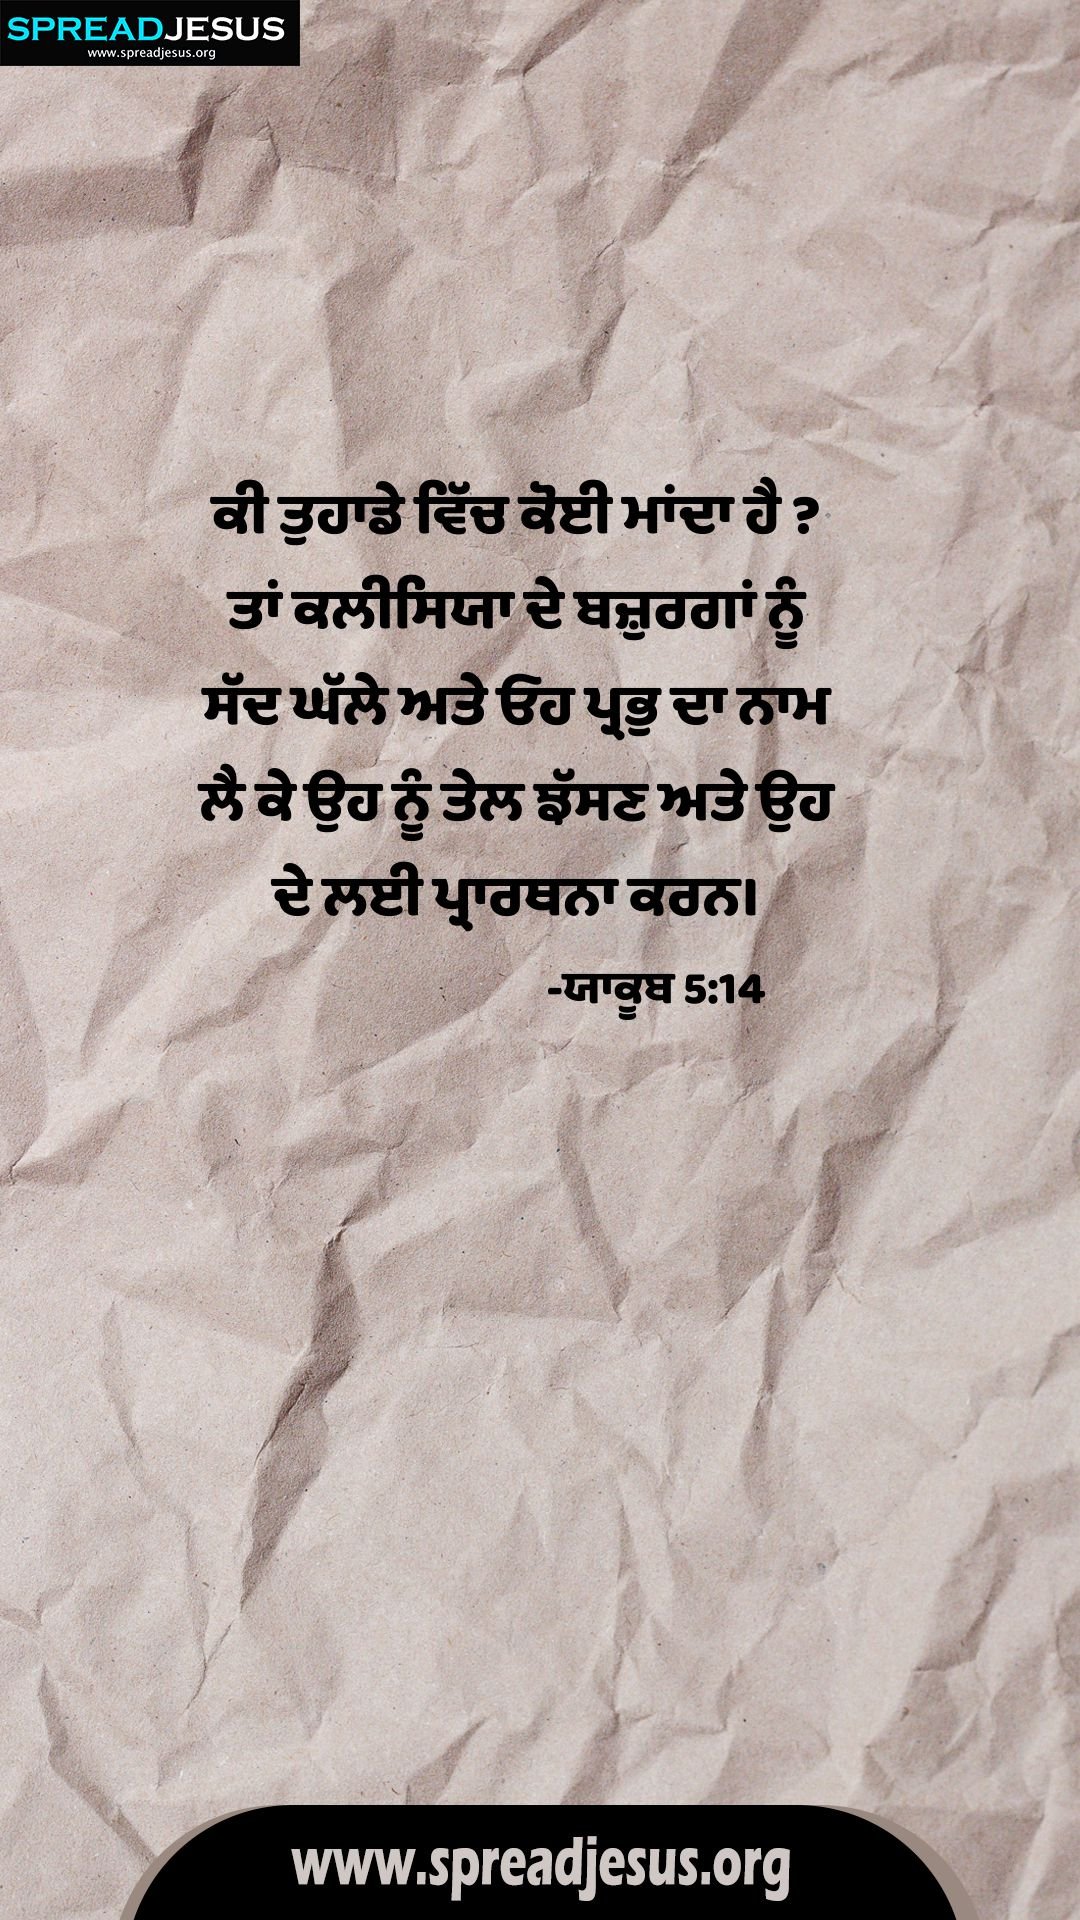 SPREADJESUS
www.spreadjesus.org
ਕੀ ਤੁਹਾਡੇ ਵਿੱਚ ਕੋਈ ਮਾਂਦਾ ਹੈ ?
ਤਾਂ ਕਲੀਸਿਯਾ ਦੇ ਬਜ਼ੁਰਗਾਂ ਨੂੰ
ਸੱਦ ਘੱਲੇ ਅਤੇ ਓਹ ਪ੍ਰਭੁ ਦਾ ਨਾਮ
ਲੈ ਕੇ ਉਹ ਨੂੰ ਤੇਲ ਝੱਸਣ ਅਤੇ ਉਹ
ਦੇ ਲਈ ਪ੍ਰਾਰਥਨਾ ਕਰਨ।
-ਯਾਕੂਬ 5:14
www.spreadjesus.org